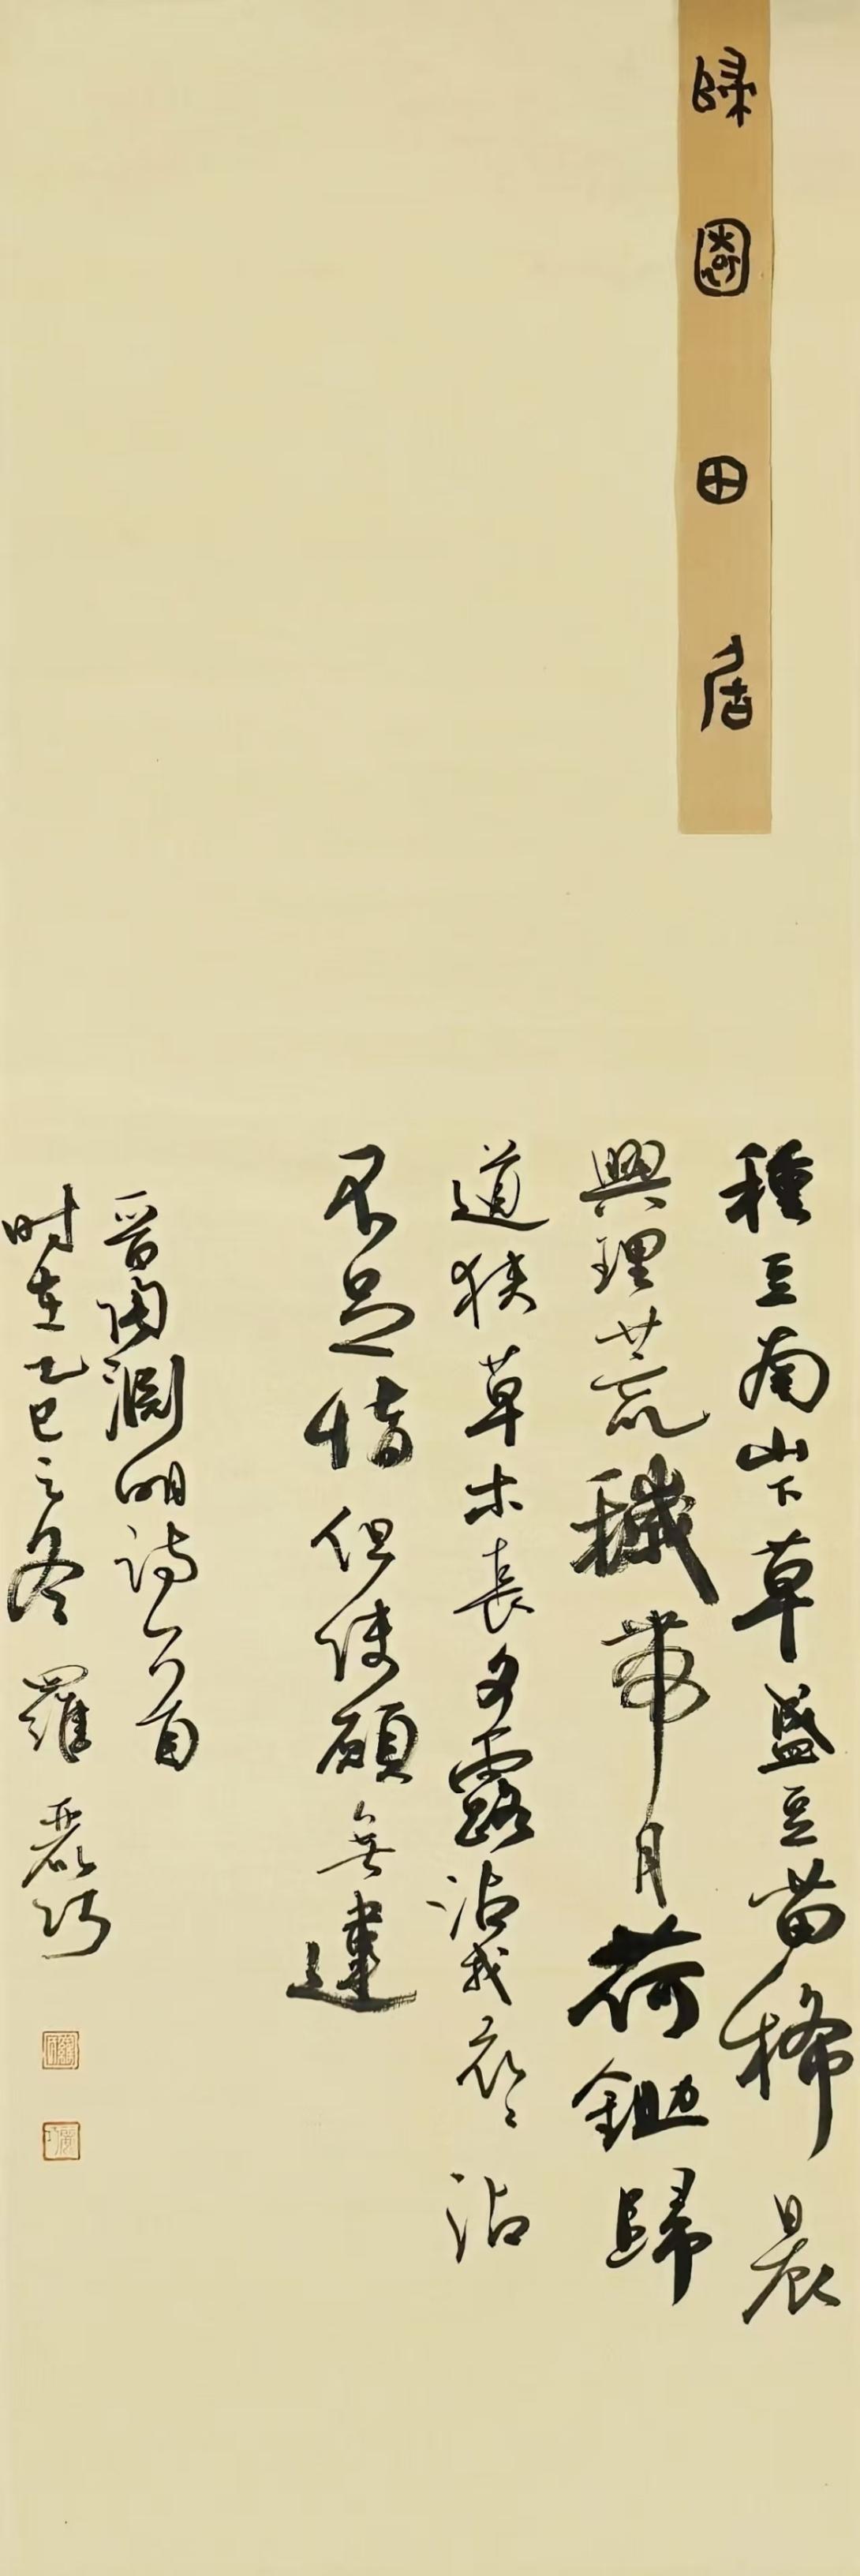 歸園田居
種豆南山下草盛豆苗稀晨
興理荒穢帶月荷鋤歸
道狹草木長夕露沾我衣衣沾
不足惜但使願無違
晋陶淵明詩一首
时在乙巳之冬羅麗巧